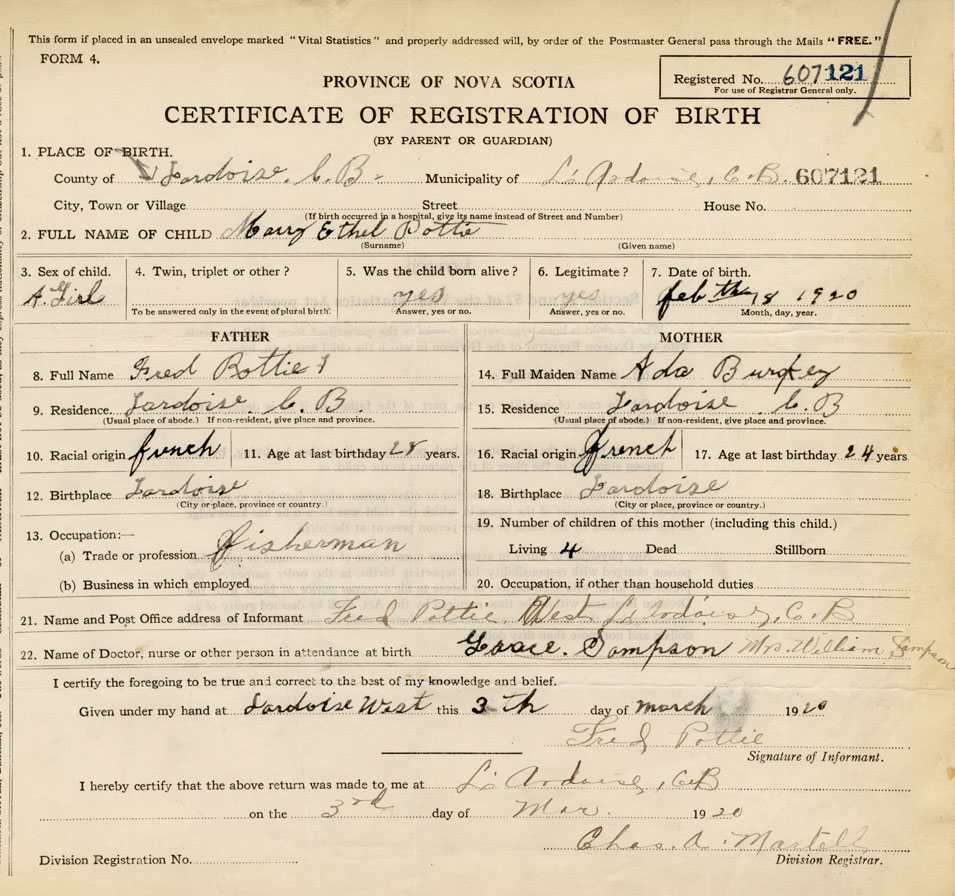 This form if placed in an unsealed envelope marked "Vital Statistics" and properly addressed will, by order of the Postmaster General pass through the Mails "FREE."
FORM 4.
Registered No. 607121
For use of Registrar General only.
PROVINCE OF NOVA SCOTIA
CERTIFICATE OF REGISTRATION OF BIRTH
(BY PARENT OR GUARDIAN)
1. PLACE OF BIRTH.
County of Lardoise. C. B. Municipality of L's Ardoise, C. B. 607121
City, Town or Village Street House No.
(If birth occurred in a hospital, give its name instead of Street and Number)
2. FULL NAME OF CHILD Mary Ethel Pottie
(Surname) (Given name)
3. Sex of child. 4. Twin, triplet or other? 5. Was the child born alive? 6. Legitimate? 7. Date of birth.
A. Girl yes yes feb th 18 1920
To be answered only in the event of plural birth. Answer, yes or no. Answer, yes or no. Month, day, year.
FATHER MOTHER
8. Full Name Fred Pottie 14. Full Maiden Name Ada
9. Residence. Lardoise C. B. 15. Residence Lardoise C. B
(Usual place of abode.) If non-resident, give place and province. (Usual place of abode.) If non-resident, give place and province.
10. Racial origin french 11. Age at last birthday 28 years. 16. Racial origin french 17. Age at last birthday 24 years
12. Birthplace Lardoise 18. Birthplace Lardoise
(City or place, province or country.) (City or place, province or country.)
13. Occupation:— 19. Number of children of this mother (including this child.)
(a) Trade or profession fisherman Living 4 Dead Stillborn
(b) Business in which employed 20. Occupation, if other than household duties
21. Name and Post Office address of Informant Fred Pottie, West L'Ardoise, C. B
22. Name of Doctor, nurse or other person in attendance at birth Grace. Sampson Mrs. William Sampson
I certify the foregoing to be true and correct to the best of my knowledge and belief.
Given under my hand at Lardoise West this 3 th day of march 1920
Fred Pottie
Signature of Informant.
I hereby certify that the above return was made to me at L's Ardoise, C. B
on the 3rd day of Mar. 1920
Chas. A. Martell
Division Registration No. Division Registrar.